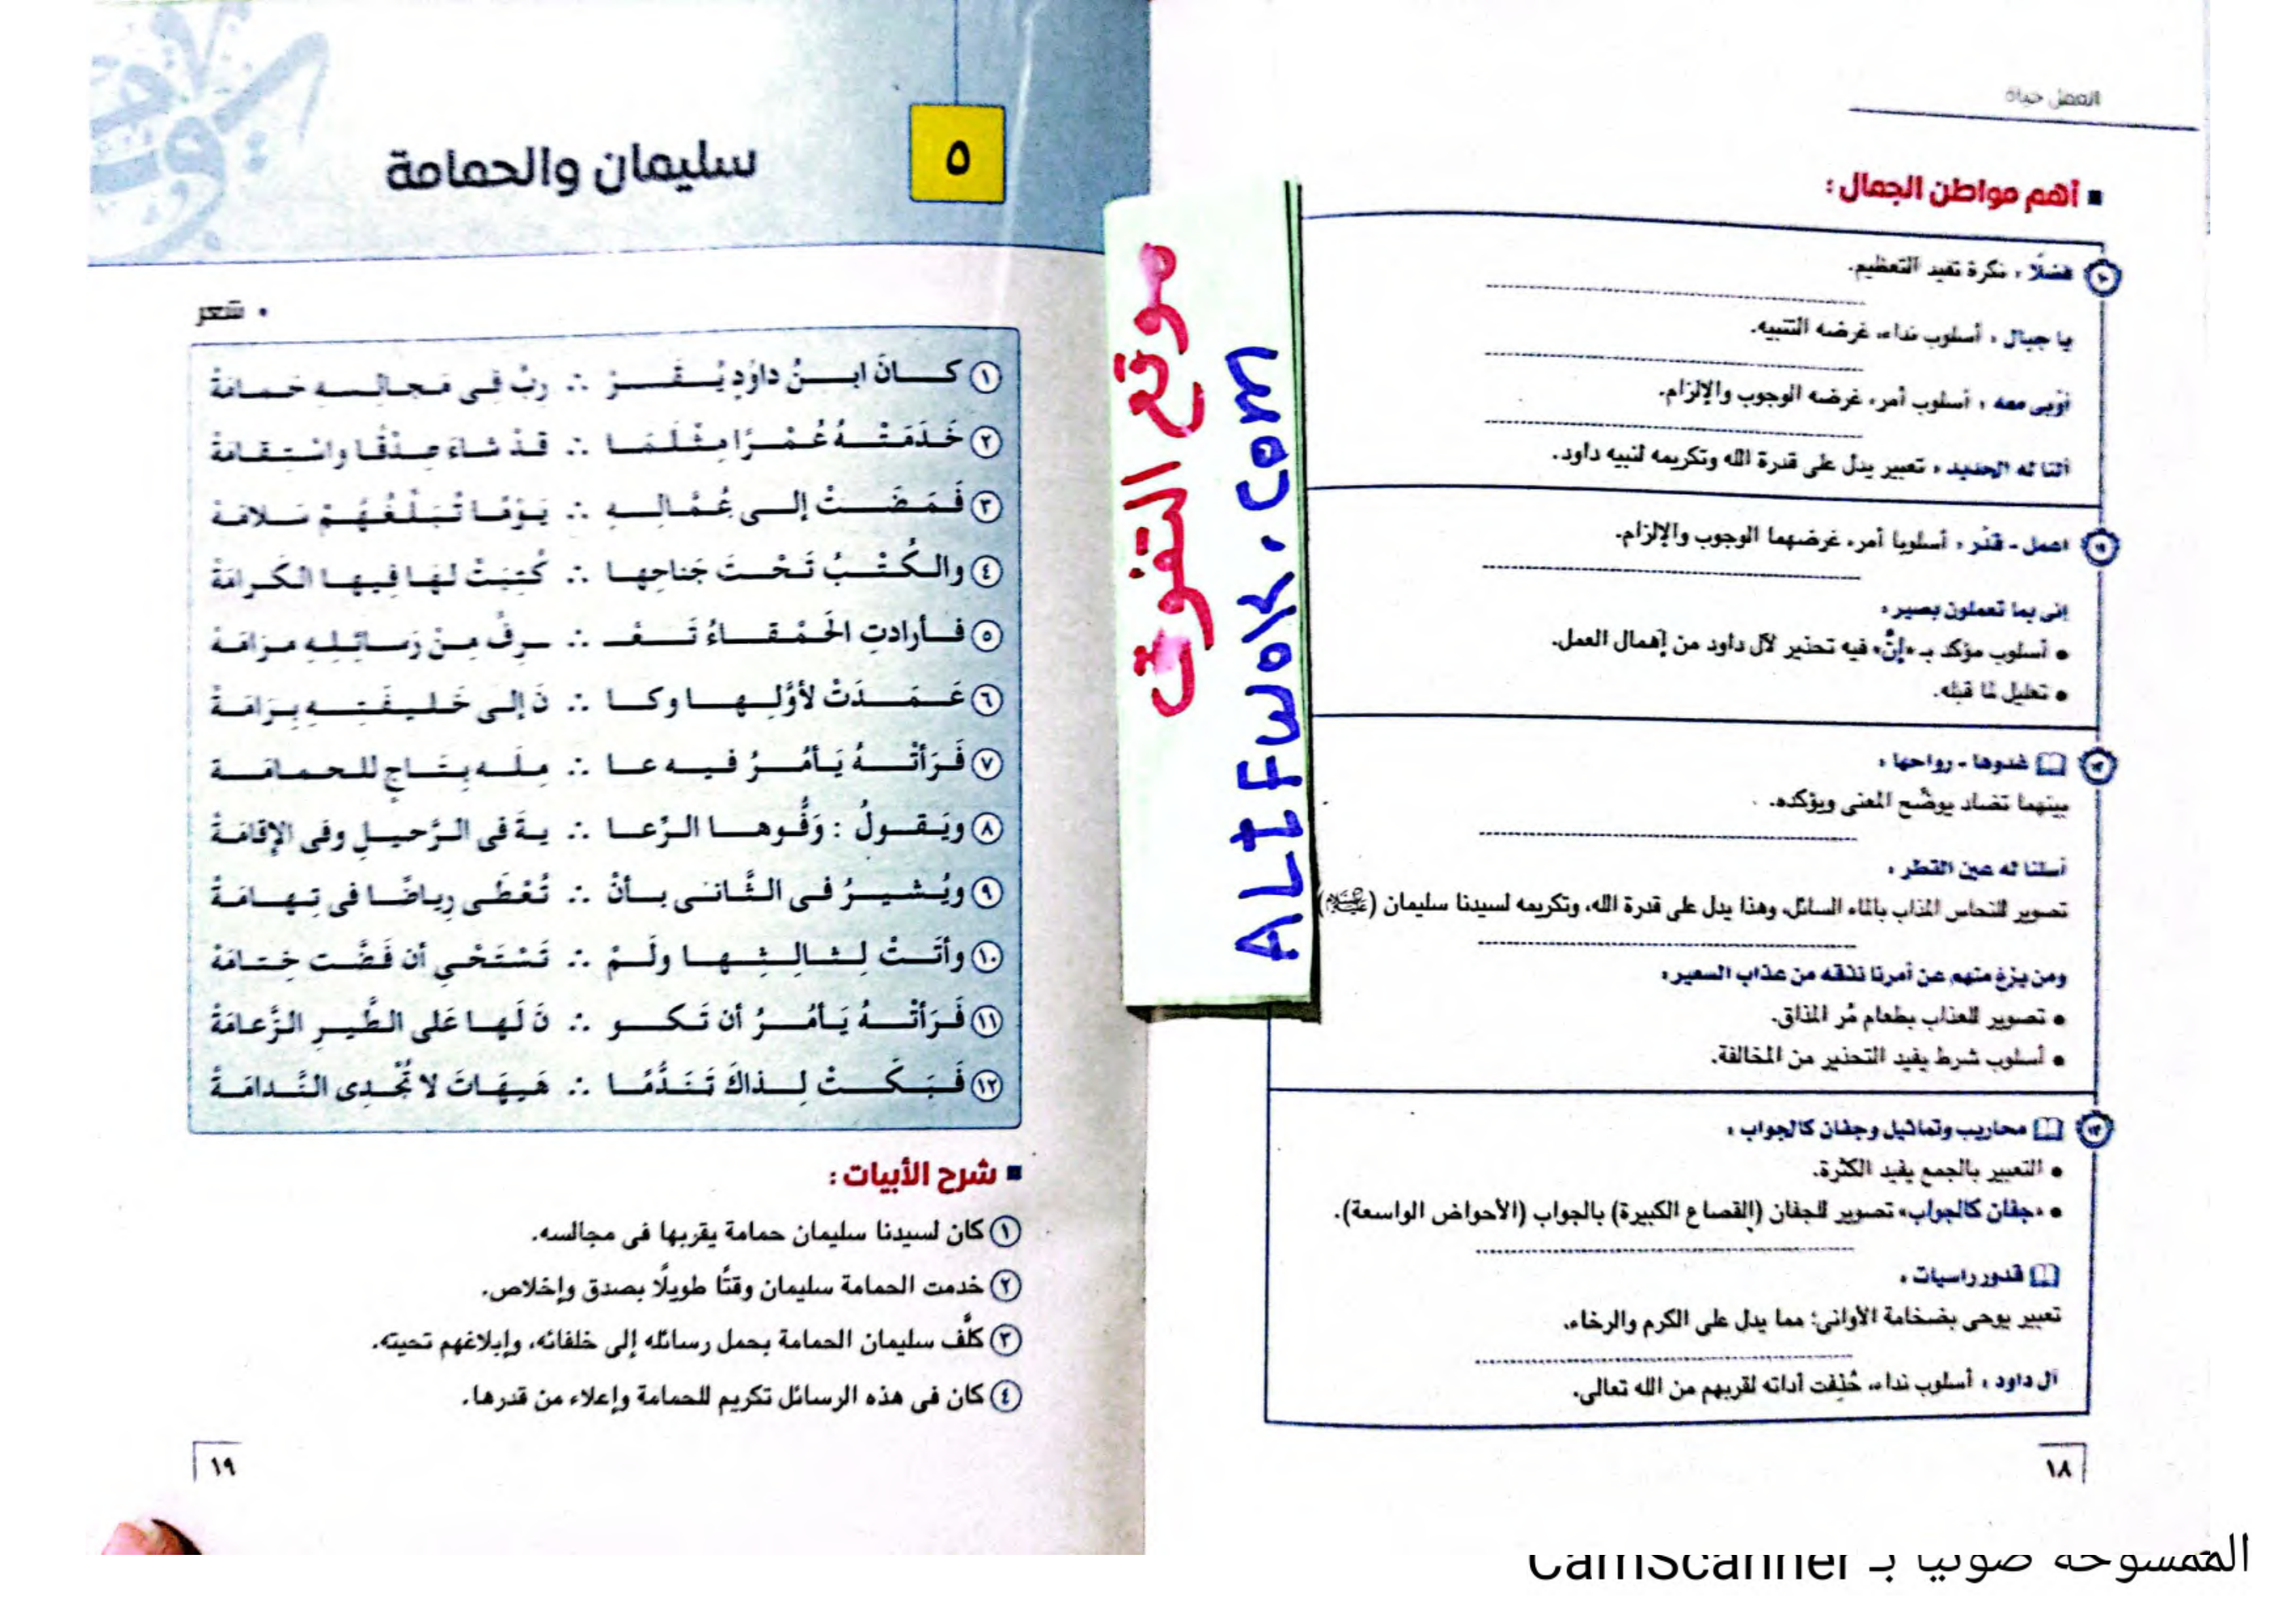 العمل حياة
■ أهم مواطن الجمال :
١٠ فضلًا : نكرة تفيد التعظيم.
يا جبال : أسلوب نداء، غرضه التنبيه.
أوبى معه : أسلوب أمر، غرضه الوجوب والإلزام.
ألنا له الحديد : تعبير يدل على قدرة الله وتكريمه لنبيه داود.
١١ اعمل - قدر : أسلوبا أمر، غرضهما الوجوب والإلزام.
إنى بما تعملون بصير :
• أسلوب مؤكد بـ «إنَّ» فيه تحذير لآل داود من إهمال العمل.
• تعليل لما قبله.
١٢ غدوها - رواحها :
بينهما تضاد يوضِّح المعنى ويؤكده.
أسلنا له عين القطر :
تصوير للنحاس المذاب بالماء السائل، وهذا يدل على قدرة الله، وتكريمه لسيدنا سليمان (عليه السلام)
ومن يزغ منهم عن أمرنا نذقه من عذاب السعير :
• تصوير للعذاب بطعام مُر المذاق.
• أسلوب شرط يفيد التحذير من المخالفة.
١٣ محاريب وتماثيل وجفان كالجواب :
• التعبير بالجمع يفيد الكثرة.
• «جفان كالجواب» تصوير للجفان (القصاع الكبيرة) بالجواب (الأحواض الواسعة).
قدور راسيات :
تعبير يوحى بضخامة الأوانى؛ مما يدل على الكرم والرخاء.
آل داود : أسلوب نداء، حُذِفت أداته لقربهم من الله تعالى.
١٨
موقع التفوق
ALtFwok.com
٥
سليمان والحمامة
• شعر
١ كـان ابـنُ داوُدٍ يُـقَـر ∴ رِبُ فِي مَجالِسِهِ حَمامَةْ
٢ خَدَمَتْهُ عُمْرًا مِثْلَمَا ∴ قَدْ شاءَ صِدْقًا واسْتِقامَةْ
٣ فَمَضَتْ إلى عُمَّالِهِ ∴ يَوْمًا تُبَلِّغُهُمْ سَلامَهْ
٤ والكُتْبُ تَحْتَ جَناحِها ∴ كُتِبَتْ لهَا فِيها الكَرامَةْ
٥ فأرادتِ الحَمْقاءُ تَعْـ ∴ ـرِفُ مِنْ رَسائِلِهِ مرَامَهْ
٦ عَمَدَتْ لأوَّلِها وكا ∴ نَ إلَى خَليفَتِهِ بِرَامَةْ
٧ فَرَأتْهُ يَأمُرُ فيه عا ∴ مِلَه بِتَاجٍ للحمامَة
٨ ويَقولُ : وَفُّوها الرِّعا ∴ يةَ فى الرَّحيلِ وفى الإقامَةْ
٩ ويُشيرُ فى الثَّانى بأنْ ∴ تُعْطَى رِياضًا فى تِهامَةْ
١٠ وأتَتْ لِثالِثِها ولَمْ ∴ تَسْتَحْيِ أن فَضَّت خِتامَهْ
١١ فَرَأتْهُ يَأمُرُ أن تَكو ∴ نَ لَها عَلى الطَّيرِ الزَّعامَةْ
١٢ فَبَكَتْ لِذاكَ تَنَدُّمًا ∴ هَيهَاتَ لا تُجْدِى النَّدامَةْ
■ شرح الأبيات :
١ كان لسيدنا سليمان حمامة يقربها فى مجالسه.
٢ خدمت الحمامة سليمان وقتًا طويلًا بصدق وإخلاص.
٣ كلَّف سليمان الحمامة بحمل رسائله إلى خلفائه، وإبلاغهم تحيته.
٤ كان فى هذه الرسائل تكريم للحمامة وإعلاء من قدرها.
١٩
الممسوحة ضوئيا بـ CamScanner